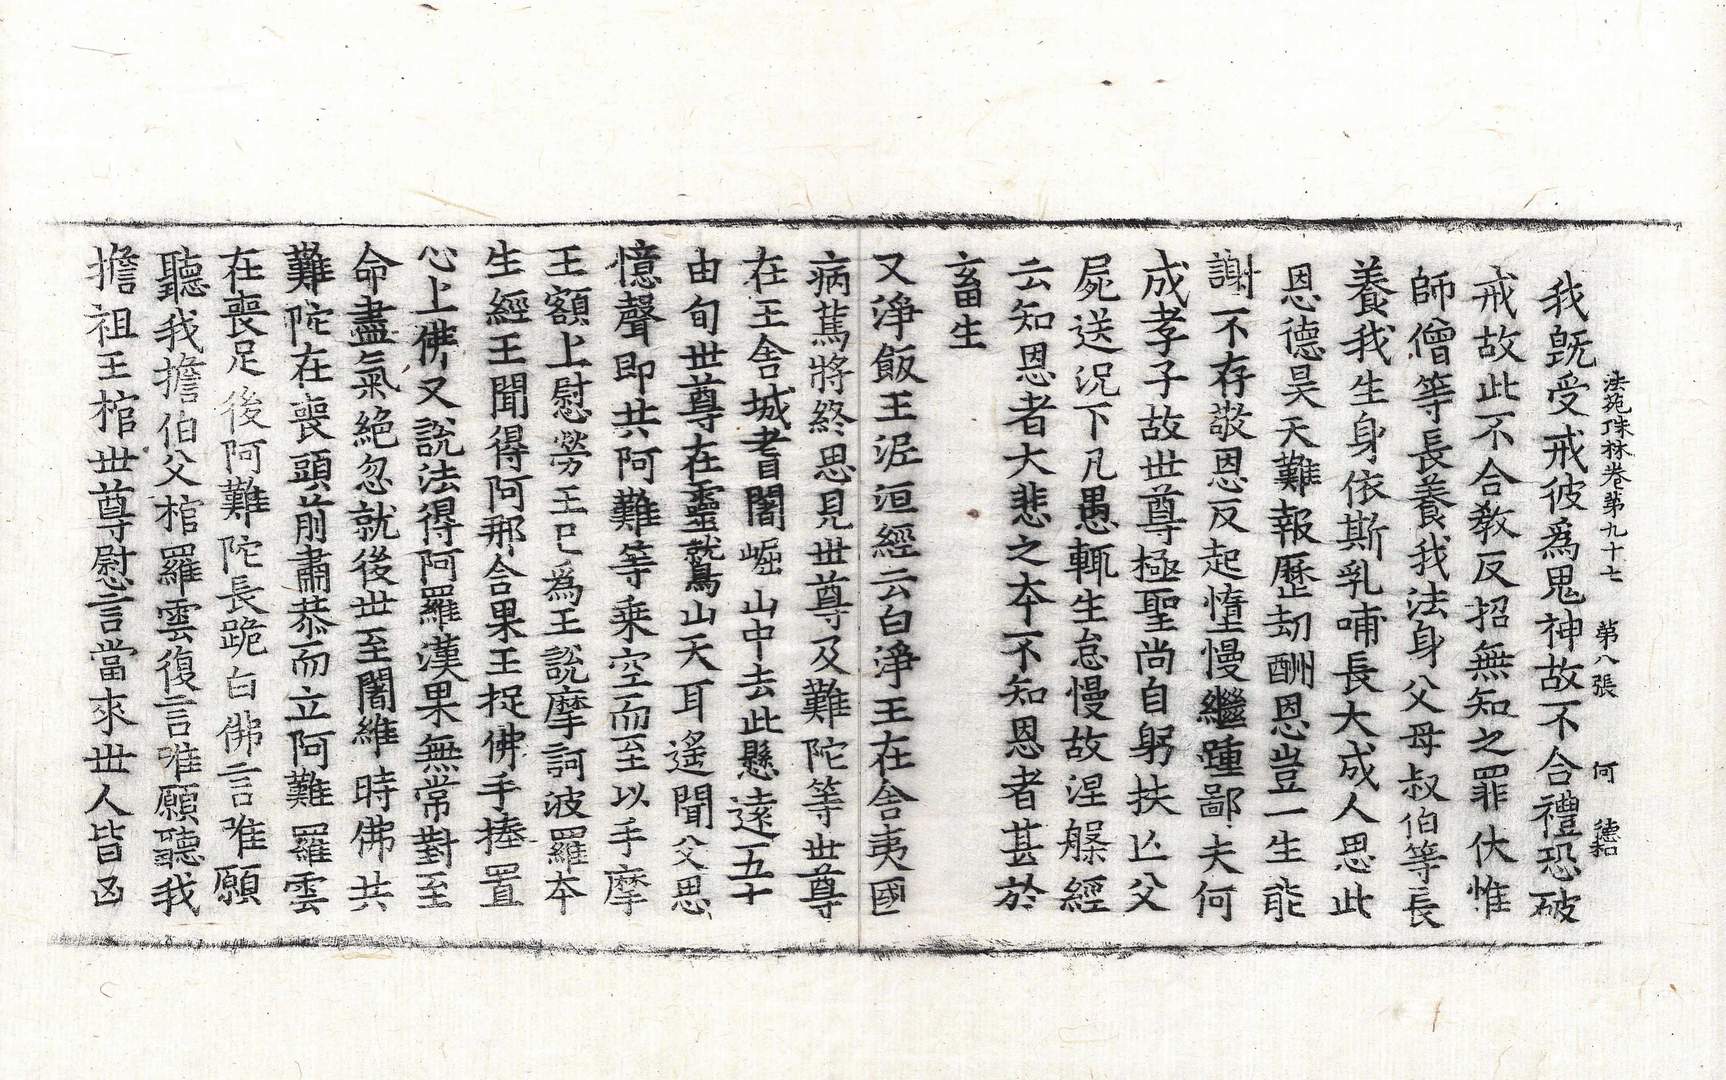 法苑珠林卷第九十七 第八張 何 德和
我旣受戒彼爲鬼神故不合禮恐破
戒故此不合敎反招無知之罪伏惟
師僧等長養我法身父母叔伯等長
養我生身依斯乳哺長大成人思此
恩德昊天難報歷劫酬恩豈一生能
謝不存敬恩反起憍慢繼踵鄙夫何
成孝子故世尊極聖尚自躬扶亡父
屍送況下凡愚輒生怠慢故涅槃經
云知恩者大悲之本不知恩者甚於
畜生
又淨飯王泥洹經云白淨王在舍夷國
病篤將終思見世尊及難陀等世尊
在王舍城耆闍崛山中去此懸遠五十
由旬世尊在靈鷲山天耳遙聞父思
憶聲即共阿難等乘空而至以手摩
王額上慰勞王已爲王說摩訶波羅本
生經王聞得阿那含果王捉佛手捧置
心上佛又說法得阿羅漢果無常對至
命盡氣絶忽就後世至闍維時佛共
難陀在喪頭前肅恭而立阿難羅雲
在喪足後阿難陀長跪白佛言唯願
聽我擔伯父棺羅雲復言唯願聽我
擔祖王棺世尊慰言當來世人皆凶